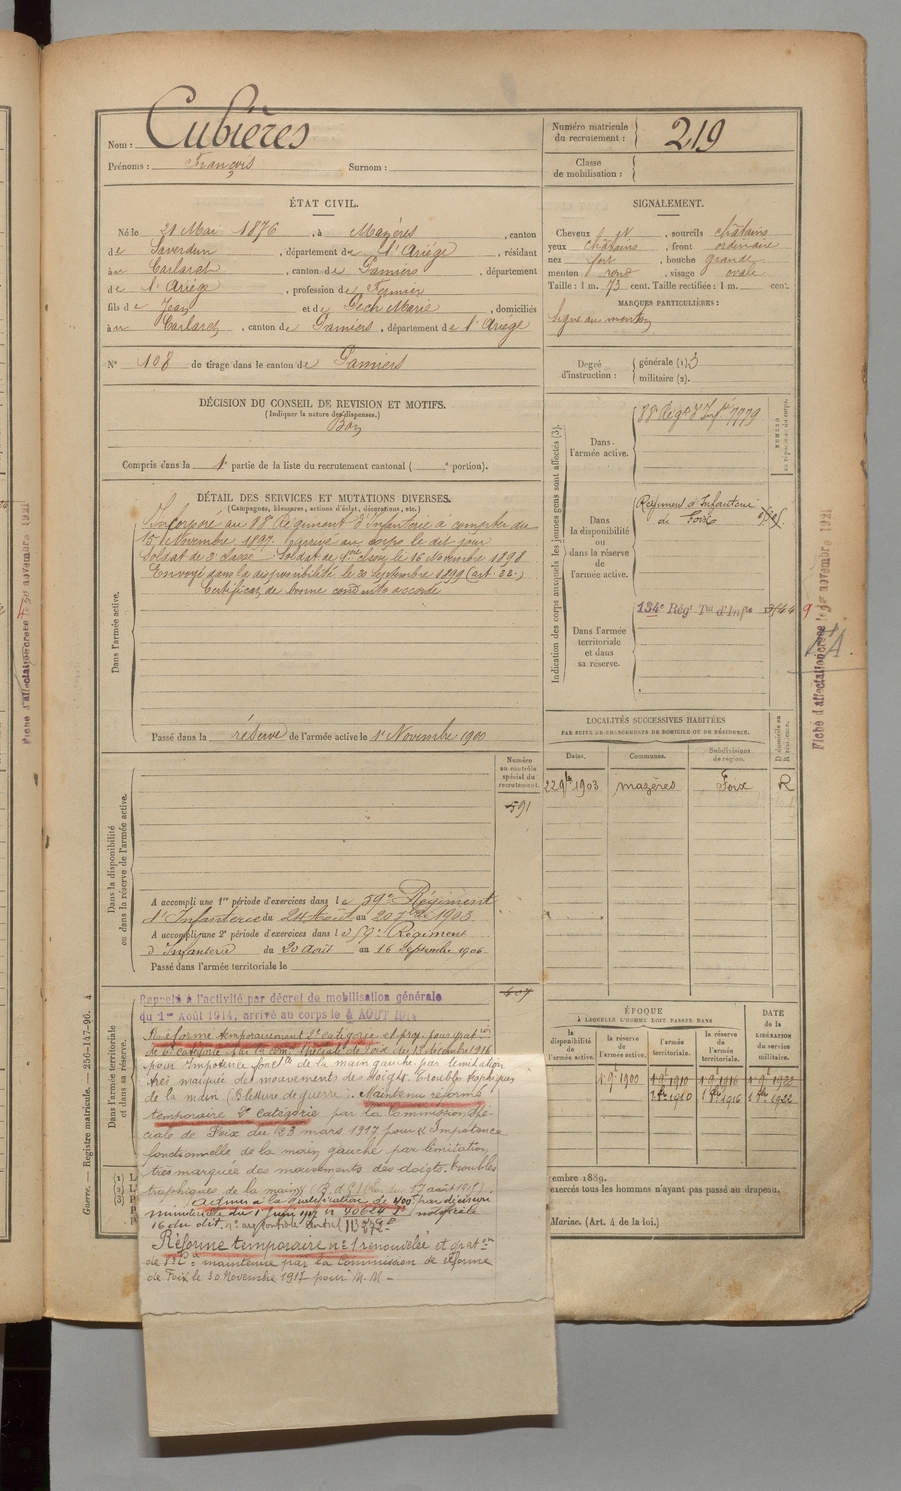 Nom : Cubières
Prénoms : François Surnom :
Numéro matricule du recrutement : 219
Classe de mobilisation :
ÉTAT CIVIL.
Né le 21 Mai 1876, à Mazères, canton
de Saverdun, département de l'Ariège, résidant
à Carlaret, canton de Pamiers, département
de l'Ariège, profession de Fermier
fils de Jean et de Pech Marie, domiciliés
à Carlaret, canton de Pamiers, département de l'Ariège
N° 108 de tirage dans le canton de Pamiers
SIGNALEMENT.
Cheveux N, sourcils châtains
yeux châtains, front ordinaire
nez fort, bouche grande
menton rond, visage ovale
Taille : 1 m. 73 cent. Taille rectifiée : 1 m. cent.
MARQUES PARTICULIÈRES :
Signe au menton
Degré d'instruction : générale (1) 3
militaire (2).
DÉCISION DU CONSEIL DE REVISION ET MOTIFS.
(Indiquer la nature des dispenses.)
Bon
Compris dans la 1e partie de la liste du recrutement cantonal ( e portion).
DÉTAIL DES SERVICES ET MUTATIONS DIVERSES.
(Campagnes, blessures, actions d'éclat, décorations, etc.)
Dans l'armée active.
Incorporé au 88e Régiment d'Infanterie à compter du
15 Novembre 1897. Arrivé au corps le dit jour
Soldat de 2e classe Soldat de 1ère classe le 16 Novembre 1898
Envoyé dans la disponibilité le 20 Septembre 1899 (art. 22.)
Certificat de bonne conduite accordé
Passé dans la réserve de l'armée active le 1er Novembre 1900
Indication des corps auxquels les jeunes gens sont affectés (3).
NUMÉRO au répertoire du corps.
Dans l'armée active.
88e Régt d'Infie 7779
Dans la disponibilité ou dans la réserve de l'armée active.
Régiment d'Infanterie
de Foix
Dans l'armée territoriale et dans sa réserve.
134e Rég. Tal d'Infie
Fiche d'affectation créée le novembre 1921
LOCALITÉS SUCCESSIVES HABITÉES
PAR SUITE DE CHANGEMENTS DE DOMICILE OU DE RÉSIDENCE.
Dates. Communes. Subdivisions de région. D domicile ou R résidence.
22 9bre 1903 mazères Foix R
Dans la disponibilité ou dans la réserve de l'armée active.
Numéro au contrôle spécial du recrutement.
591
A accompli une 1re période d'exercices dans le 59e Régiment
d'Infanterie du 24 Août au 20 7bre 1903
A accompli une 2e période d'exercices dans le 59e Régiment
d'Infanterie du 20 août au 16 Septembre 1906
Passé dans l'armée territoriale le
407
Dans l'armée territoriale et dans sa réserve.
Rappelé à l'activité par décret de mobilisation générale
du 1er Août 1914, arrivé au corps le 4 AOUT 1914
Réformé temporairement 2e catégorie et prop. pour grat on
de 6e catégorie par la com. spéciale de Foix du 13 décembre 1916
pour Impotence fonctlle de la main gauche par limitation
très marquée des mouvements des doigts. Troubles trophiques
de la main (Blessure de guerre). Maintenu réformé
temporaire 2e catégorie par la Commission spé-
ciale de Foix du 23 mars 1917 pour « Impotence
fonctionnelle de la main gauche par limitation
très marquée des mouvements des doigts. troubles
trophiques de la main)
Admis à la gratification de 400f par décision
ministérielle du 1 Juin 1917 n° 40624 notifiée
16 du dit.
Réforme temporaire n° 1 renouvelée et grat on
de maintenue par la Commission de réforme
de Foix le 30 Novembre 1917 pour M. M -
ÉPOQUE
À LAQUELLE L'HOMME DOIT PASSER DANS
DATE de la LIBÉRATION du service militaire.
la disponibilité de l'armée active. la réserve de l'armée active. l'armée territoriale. la réserve de l'armée territoriale.
1 9bre 1900 1 9bre 1910 1 9bre 1916 1 9bre 1922
1 8bre 1910 1 8bre 1916 1 8bre 1922
embre 1889.
exercés tous les hommes n'ayant pas passé au drapeau.
Marine. (Art. 4 de la loi.)
Guerre. — Registre matricule. — 256-147-96. 4